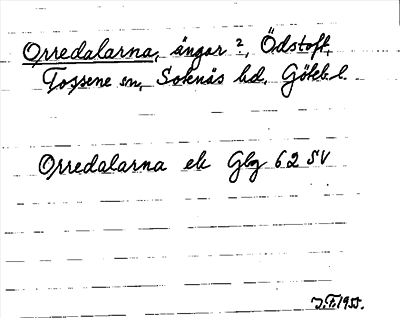 Orredalarna, ängar?, Ödstoft,
Tossene sn, Sotenäs hd, Göteb. l.
Orredalarna ek Gbg 62 SV
J.F. 1955.